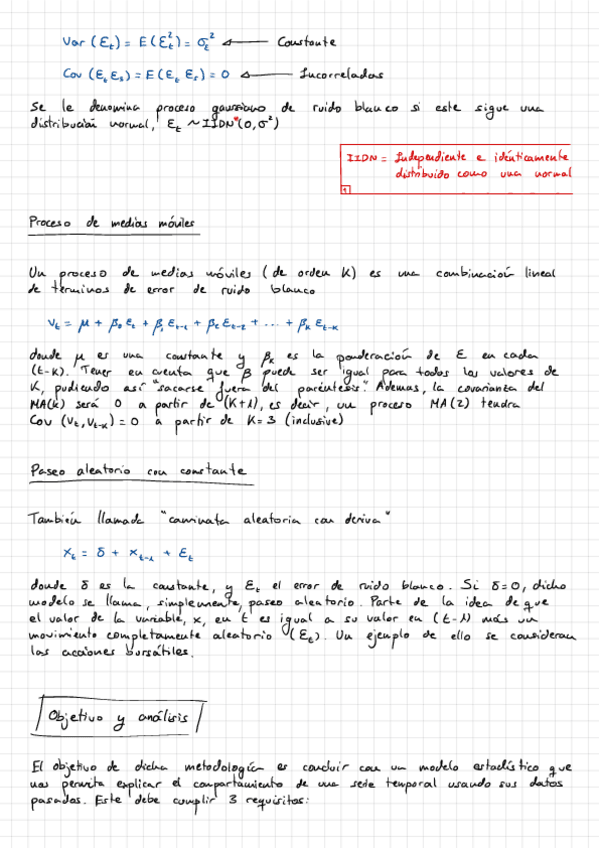 Var (Ɛt) = E (Ɛt²) = σƐ² ← Constante
Cov (Ɛt Ɛs) = E (Ɛt Ɛs) = 0 ← Incorreladas
Se le denomina proceso gaussiano de ruido blanco si este sigue una
distribución normal, Ɛt ~ IIDN*(0, σ²)
IIDN = Independiente e idénticamente
distribuido como una normal
1
Proceso de medias móviles
Un proceso de medias móviles (de orden K) es una combinación lineal
de términos de error de ruido blanco
Vt = μ + β₀ Ɛt + β₁ Ɛt-1 + β₂ Ɛt-2 + ... + βk Ɛt-k
donde μ es una constante y βk es la ponderación de Ɛ en cada
(t-K). Tener en cuenta que β puede ser igual para todos los valores de
K, pudiendo así "sacarse fuera del paréntesis". Además, la covarianza del
MA(k) será 0 a partir de (K+1), es decir, un proceso MA(2) tendra
Cov (Vt, Vt-k) = 0 a partir de K=3 (inclusive)
Paseo aleatorio con constante
También llamada "caminata aleatoria con deriva"
Xt = δ + Xt-1 + Ɛt
donde δ es la constante, y Ɛt el error de ruido blanco. Si δ=0, dicho
modelo se llama, simplemente, paseo aleatorio. Parte de la idea de que
el valor de la variable, x, en t es igual a su valor en (t-1) más un
movimiento completamente aleatorio (Ɛt). Un ejemplo de ello se consideran
las acciones bursátiles.
Objetivo y análisis
El objetivo de dicha metodología es concluir con un modelo estadístico que
nos permita explicar el comportamiento de una serie temporal usando sus datos
pasados. Este debe cumplir 3 requisitos: